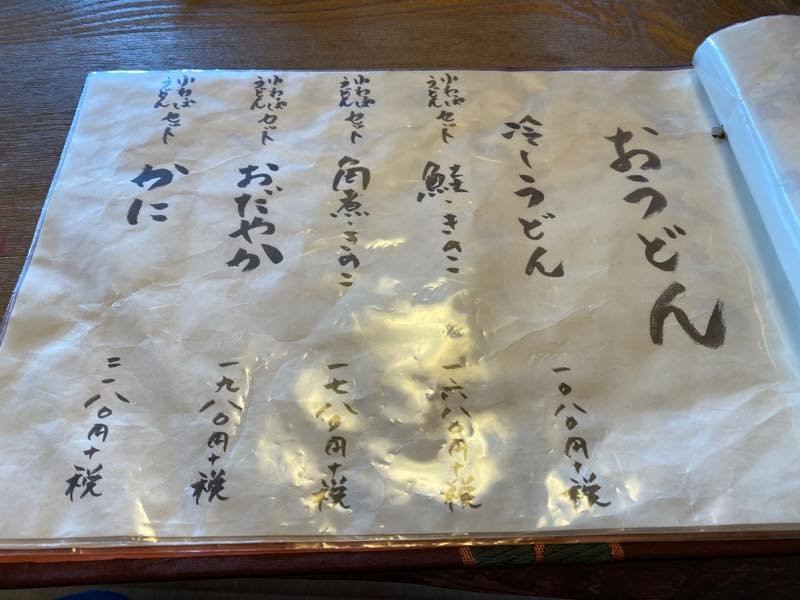 おうどん
冷しうどん
一〇八〇円+税
小わっぱ
うどん セット
鮭・きのこ
一六八〇円+税
小わっぱ
うどん セット
角煮・きのこ
一七八〇円+税
小わっぱ
うどん セット
おだやか
一九八〇円+税
小わっぱ
うどん セット
かに
二一八〇円+税